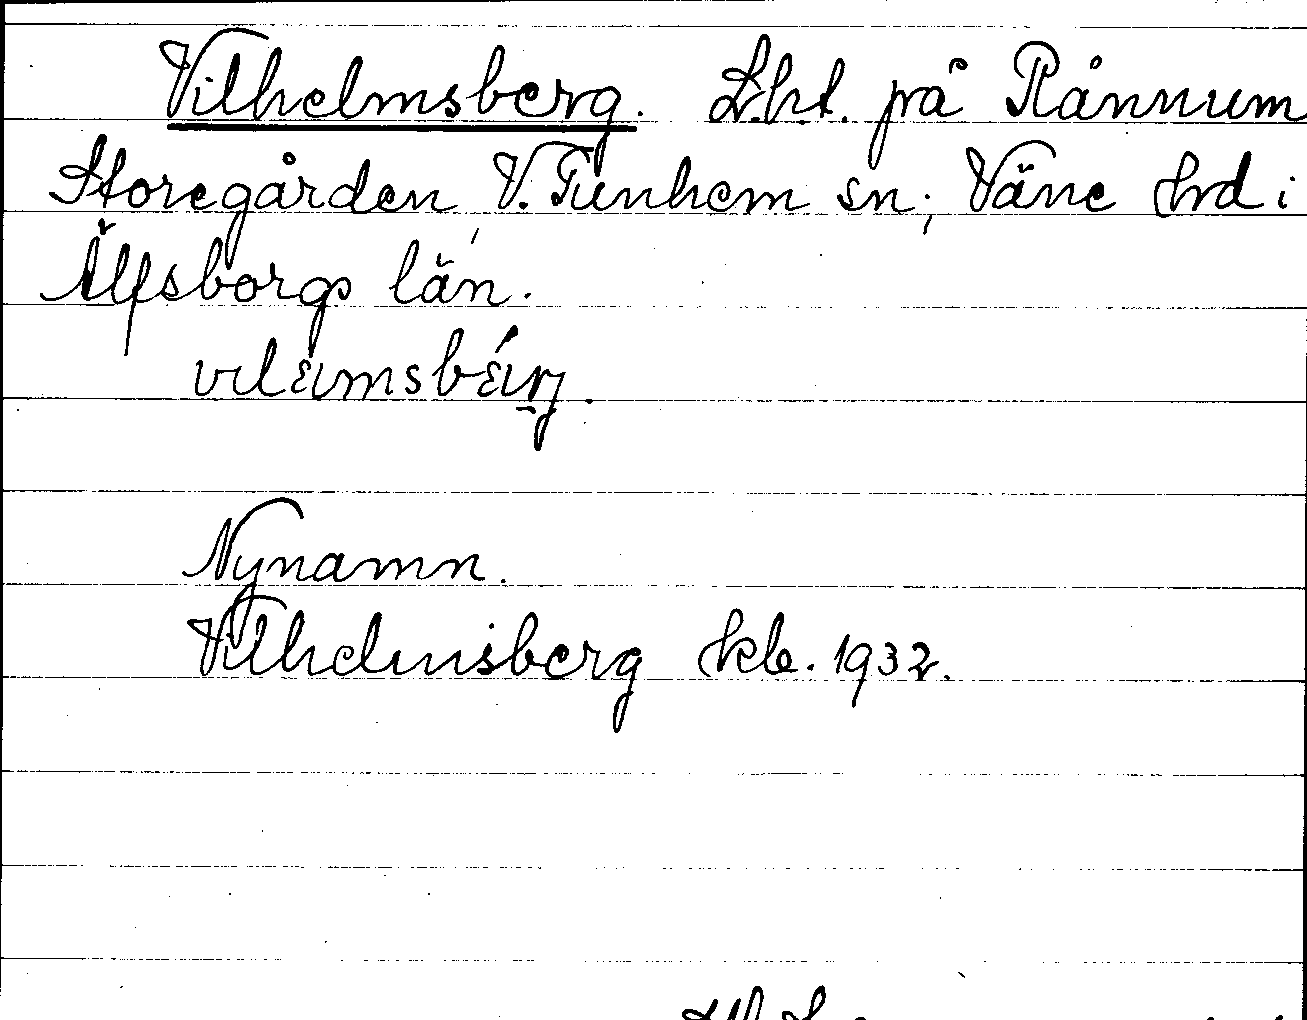 Vilhelmsberg. L.ht. på Rånnum
Storegården, V. Tunhem sn, Väne hd i
Älfsborgs län.
Nynamn.
Vilhelmsberg kb. 1932.